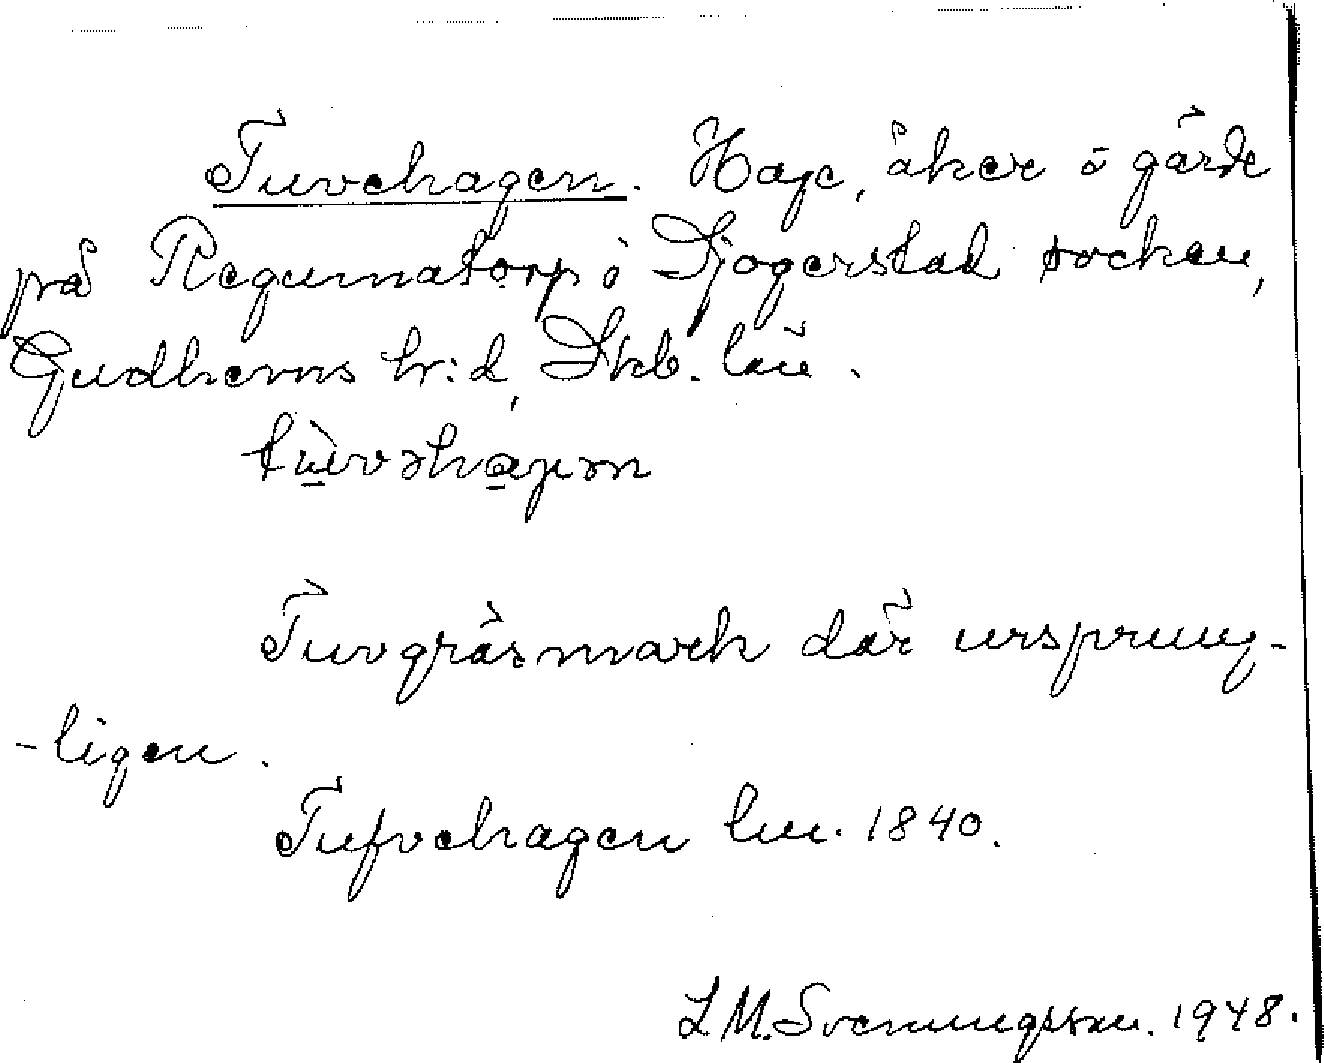 Tuvehagen. Hage, åker i gärde
på Regumatorp i Sjogerstad socken,
Gudhems hr:d, Skb. län.
tùvəhagən
Tuvgräsmark där ursprung-
-ligen.
Tufvehagen lm. 1840.
L.M. Svenungsson. 1948.